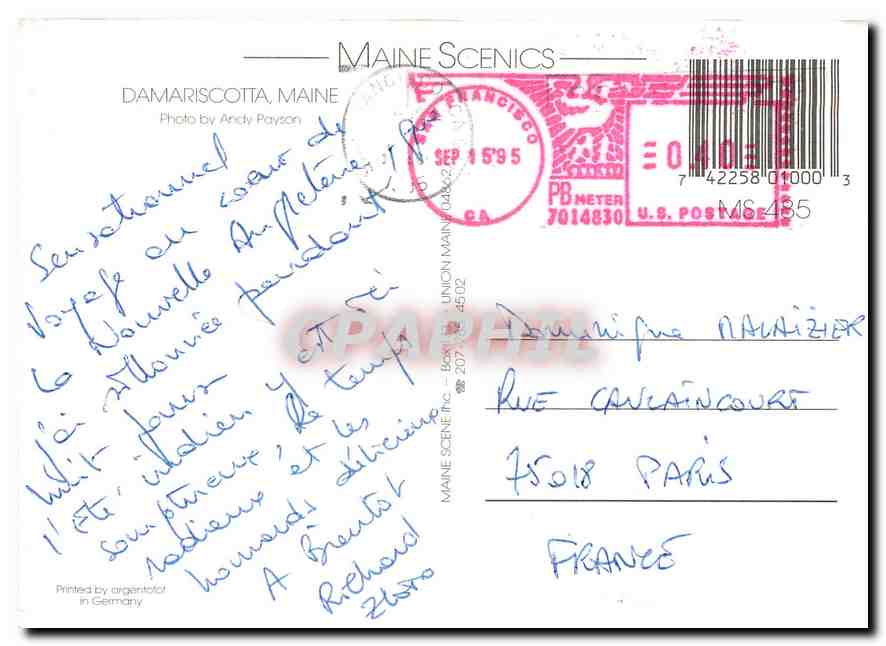 MAINE SCENICS
DAMARISCOTTA, MAINE
Photo by Andy Payson
SAN FRANCISCO
SEP 15'95
CA
PB METER
7014830
0.40
U.S. POSTAGE
7 42258 01000 3
MS 485
Sensationnel
Voyage au coeur de
la Nouvelle Angleterre, que
j'ai sillonnée pendant
huit jours
l'été indien y est ici
somptueux, le temps
radieux et les
homards délicieux
A Bientot
Richard
MAINE SCENE Inc. - Box UNION MAINE 04862
☎ 207 4502
CPAPHIL
Dominique MALAIZIER
RUE CAULAINCOURT
75018 PARIS
FRANCE
Printed by argentofot
in Germany